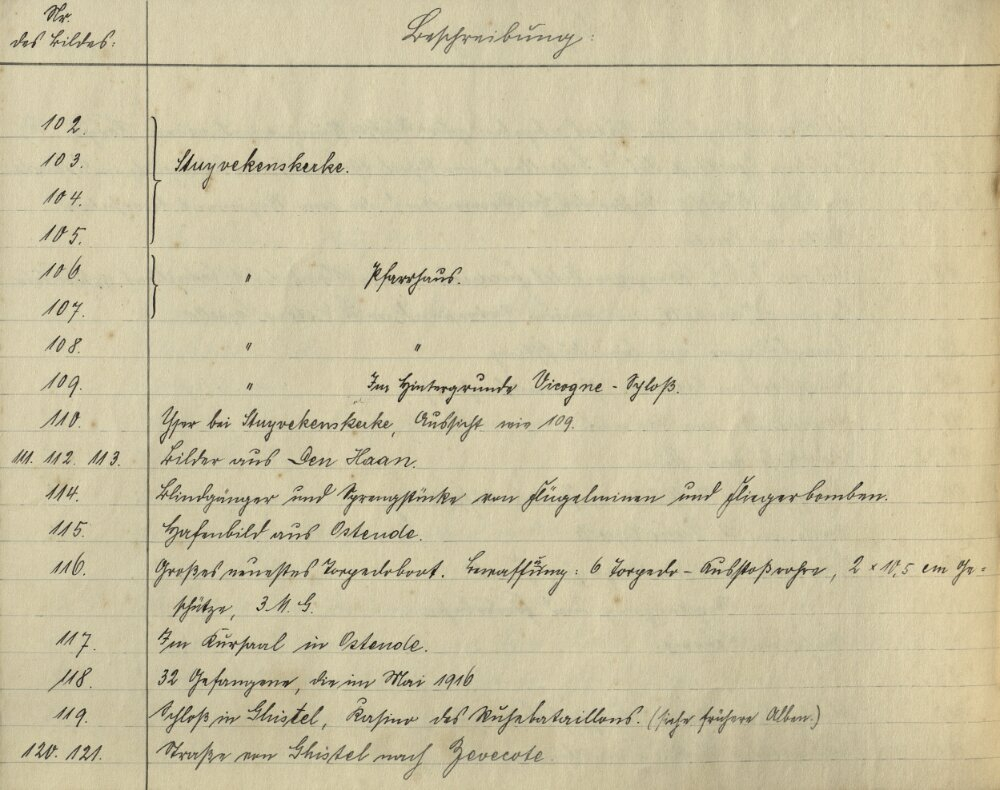 Nr.
des Bildes:
Beschreibung:
102.
103. Stuyvekenskerke.
104.
105.
106. " Pfarrhaus.
107.
108. " "
109. " Im Hintergrunde Vicogne-Schloß.
110. Yser bei Stuyvekenskerke, Aussicht wie 109.
111. 112. 113. Bilder aus Den Haan.
114. Blindgänger und Sprengstücke von Flügelminen und Fliegerbomben.
115. Hafenbild aus Ostende.
116. Großes neuestes Torpedoboot. Bewaffnung: 6 Torpedo-Ausstoßrohre, 2 x 10,5 cm Ge-
schütze, 3 M.G.
117. Im Kursaal in Ostende.
118. 32 Gefangene, die im Mai 1916
119. Schloß in Ghistel, Kasino des Ruhebataillons. (siehe frühere Alben.)
120. 121. Straße von Ghistel nach Zevecote.